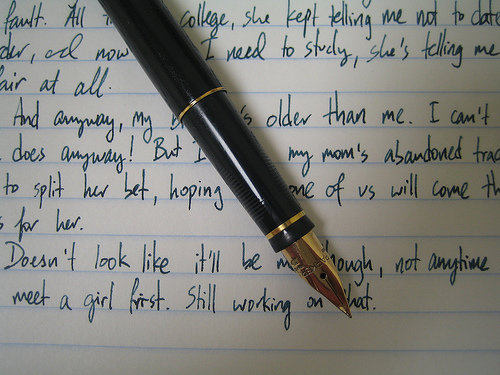 fault. All college, she kept telling me not to date
now I need to study, she's telling me
fair at all.
And anyway, my older than me. I can't
does anyway! But I my mom's abandoned
to split her bet, hoping one of us will come
for her.
Doesn't look like it'll be me though, not anytime
meet a girl first. Still working on that.